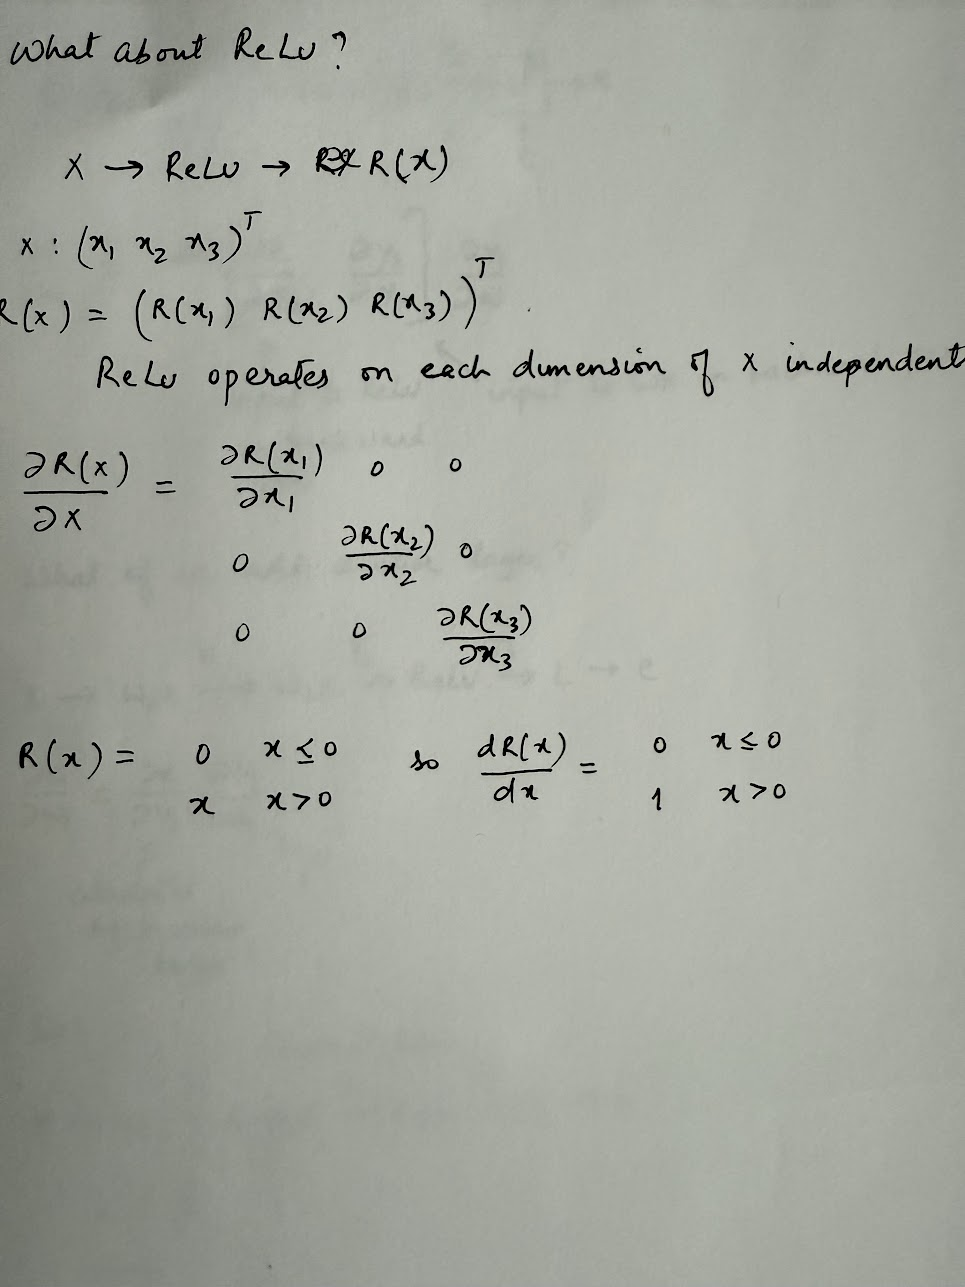 What about ReLu?
X → ReLu → R(x)
x : (x₁ x₂ x₃)ᵀ
R(x) = (R(x₁) R(x₂) R(x₃))ᵀ
ReLu operates on each dimension of x independent
∂R(x)/∂X = ∂R(x₁)/∂x₁ 0 0
0 ∂R(x₂)/∂x₂ 0
0 0 ∂R(x₃)/∂x₃
R(x) = 0 x ≤ 0 so dR(x)/dx = 0 x ≤ 0
x x > 0 1 x > 0